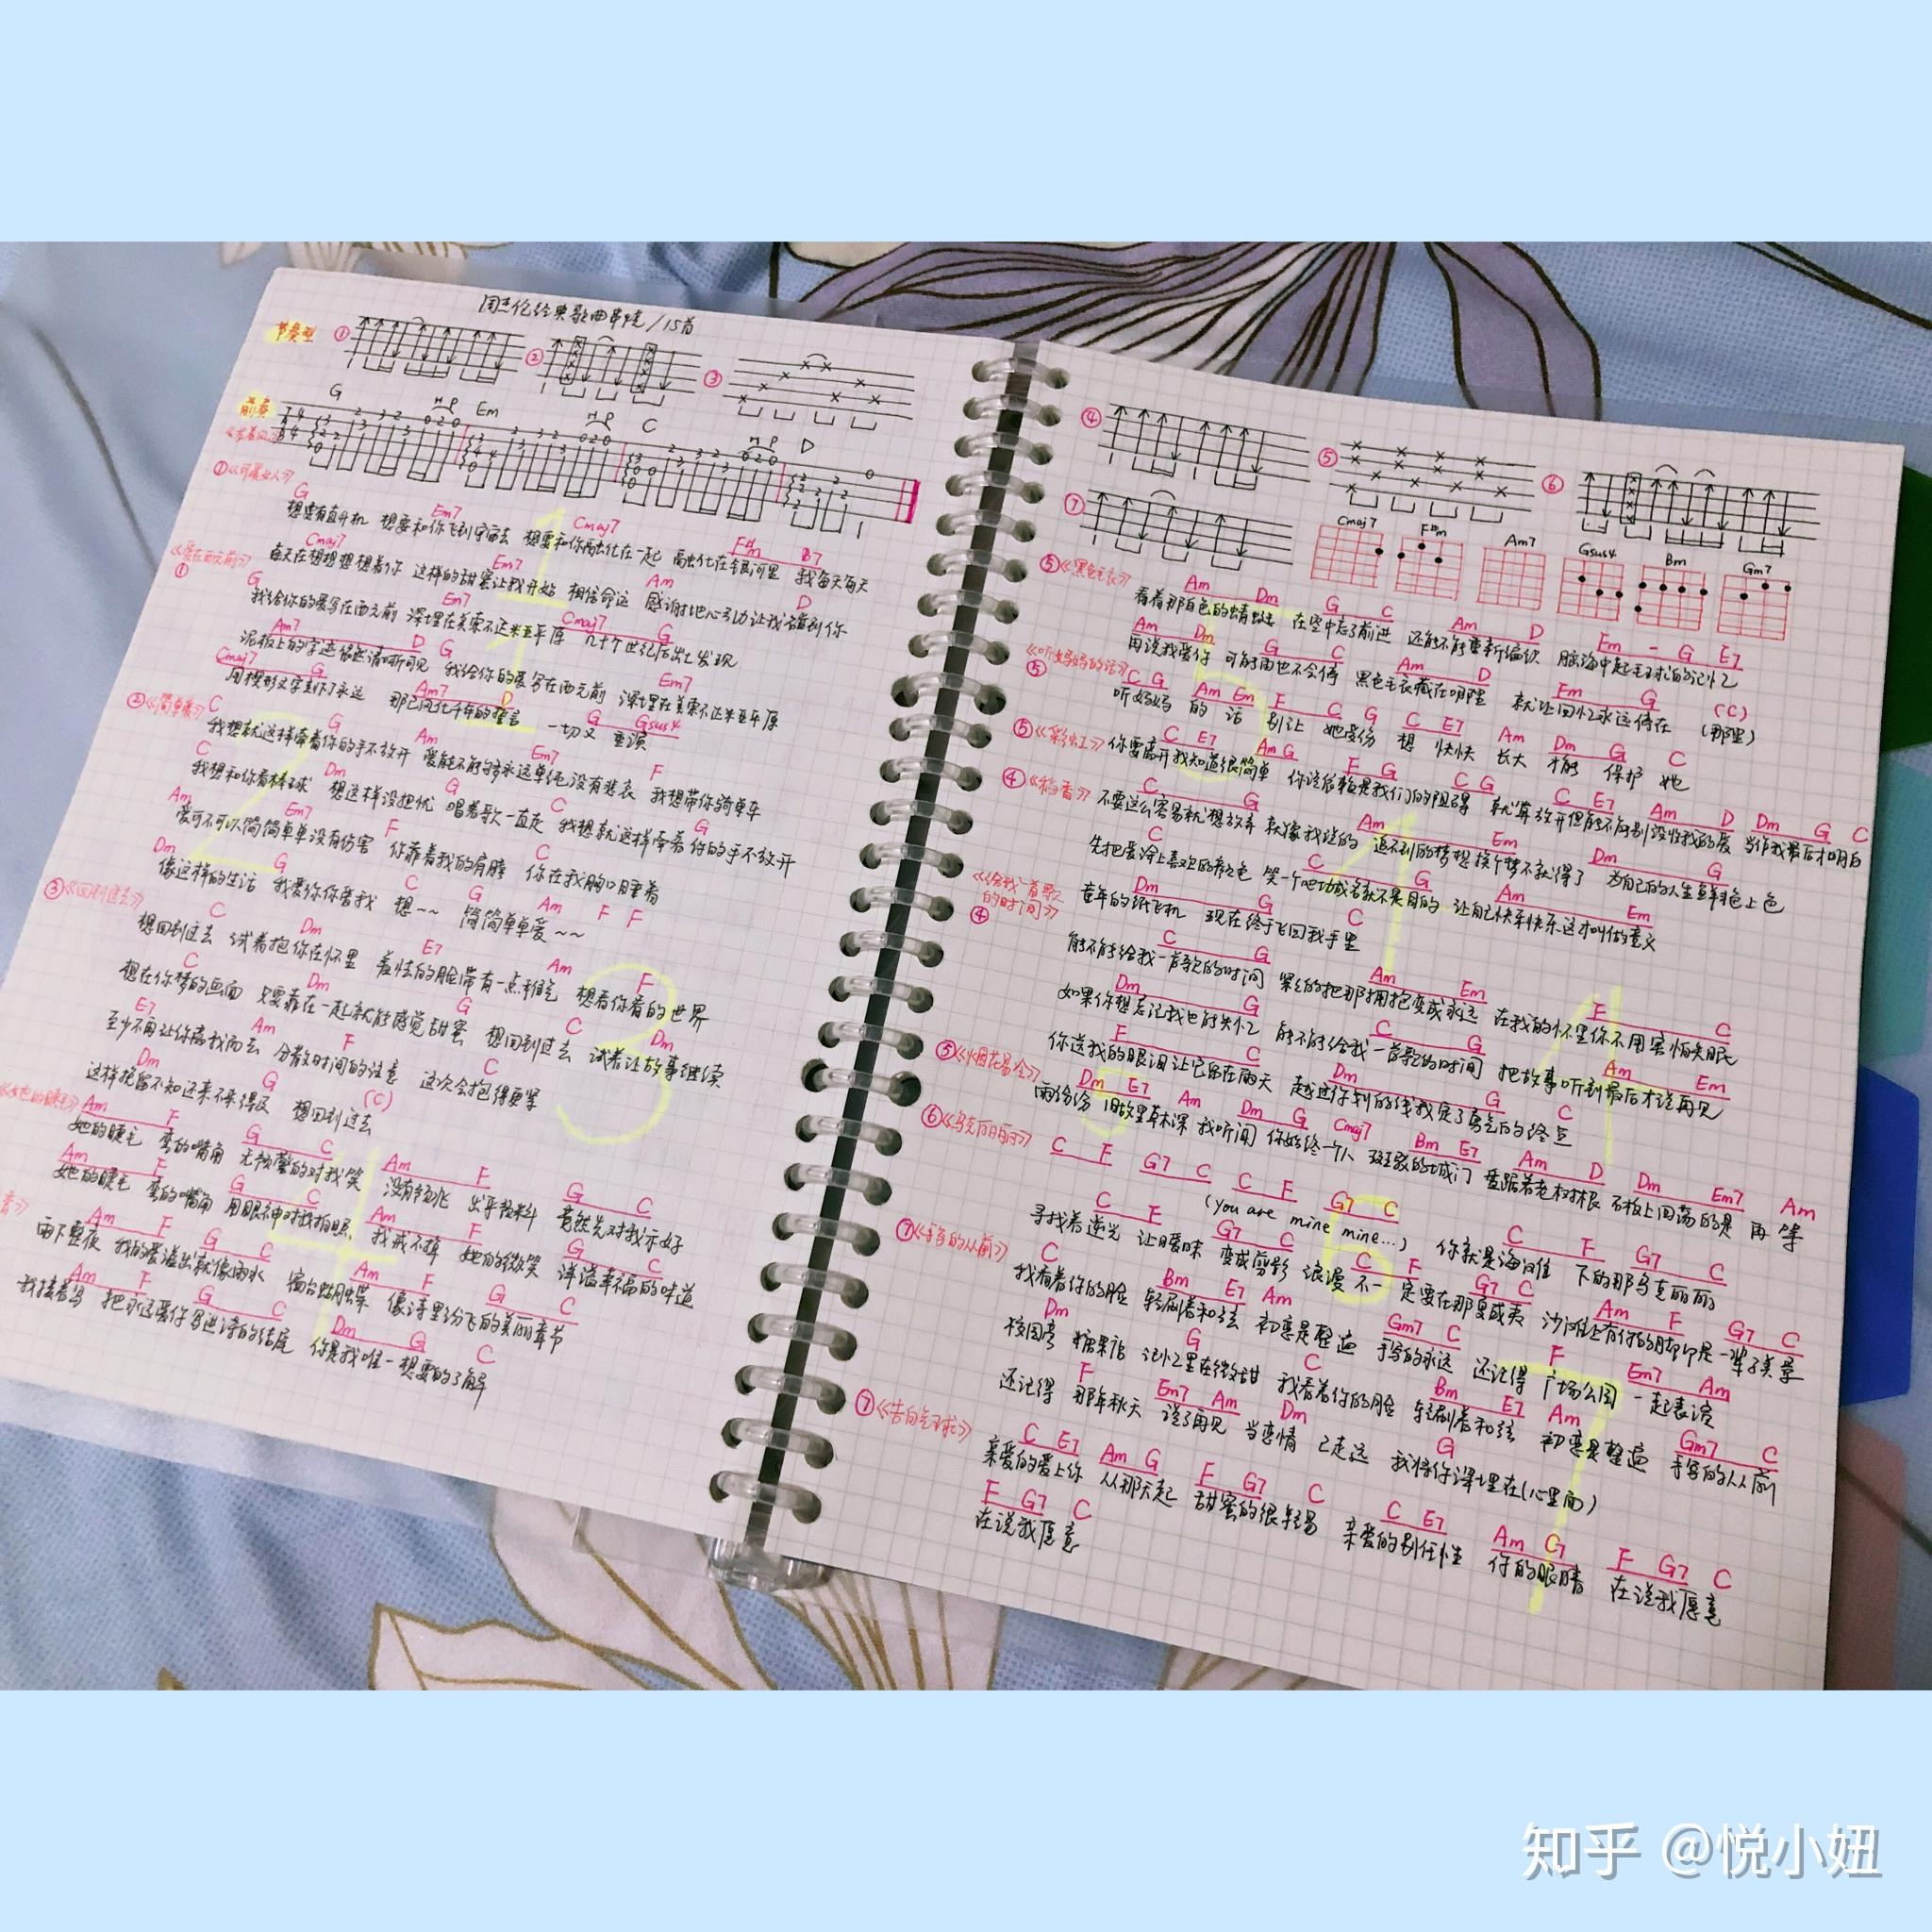 周杰伦经典歌曲串烧/15首
节奏型 ① ② ③
前奏 G Em C D
H P H P H P
①《可爱女人》
G Em7 Cmaj7 F#m B7
想要有直升机 想要和你飞到宇宙去 想要和你融化在一起 融化在银河里 我每天每天
Cmaj7 Em7 Am D
每天在想想想想着你 这样的甜蜜让我开始 相信命运 感谢地心引力让我碰到你
《爱在西元前》
①
G Em7 Cmaj7 G
我给你的爱写在西元前 深埋在美索不达米亚平原 几十个世纪后出土发现
Am7 D G Em7
泥板上的字迹依然清晰可见 我给你的爱写在西元前 深埋在美索不达米亚平原
Cmaj7 G Am7 D G Gsus4
用楔形文字刻下了永远 那已风化千年的誓言 一切又重演
②《简单爱》
C G Am Em7 F
我想就这样牵着你的手不放开 爱能不能够永远单纯没有悲哀 我想带你骑单车
C Dm G C G
我想和你看棒球 想这样没担忧 唱着歌一直走 我想就这样牵着你的手不放开
Am Em7 F C
爱可不可以简简单单没有伤害 你靠着我的肩膀 你在我胸口睡着
Dm G C G Am F F
像这样的生活 我爱你你爱我 想~~ 简简单单爱~~
③《回到过去》
C Dm E7 Am F
想回到过去 试着抱你在怀里 羞怯的脸带有一点稚气 想看你看的世界
C Dm G C Dm
想在你梦的画面 只要靠在一起就能感觉甜蜜 想回到过去 试着让故事继续
E7 Am F C
至少不再让你离我而去 分散时间的注意 这次会抱得更紧
Dm G (C)
这样挽留不知还来不来得及 想回到过去
Am F G C Am F G C
她的睫毛 弯的嘴角 无预警的对我笑 没有预兆 出乎预料 竟然先对我示好
Am F G C Am F G C
她的睫毛 弯的嘴角 用眼神对我拍照 我戒不掉 她的微笑 洋溢幸福的味道
香》
Am F G C Am F G C
雨下整夜 我的爱溢出就像雨水 窗台蝴蝶 像诗里纷飞的美丽章节
Am F G C Dm G C
我接着写 把永远爱你写进诗的结尾 你是我唯一想要的了解
④ ⑤ ⑥
⑦ Cmaj7 F#m Am7 Gsus4 Bm Gm7
⑤《黑色毛衣》
Am Dm G C Am D Em - G E7
看着那白色的蜻蜓 在空中忘了前进 还能不能重新编织 脑海中起毛球的记忆
Am Dm G C Am D Em G (C)
再说我爱你 可能雨也不会停 黑色毛衣藏在哪里 就让回忆永远停在 (那里)
《听妈妈的话》
⑤
C G Am Em F C G C E7 Am Dm G C
听妈妈 的 话 别让 她受伤 想 快快 长大 才能 保护 她
⑤《彩虹》
C E7 Am G F G C G C E7 Am D Dm G C
你要离开我知道很简单 你说依赖是我们的阻碍 就算放开但能不能别没收我的爱 当作我最后才明白
④《稻香》
C G Am Em Dm G
不要这么容易就想放弃 就像我说的 追不到的梦想换个梦不就得了 为自己的人生鲜艳上色
C C G Am Em
先把爱涂上喜欢的颜色 笑一个吧功成名就不是目的 让自己快乐快乐这才叫做意义
Dm G C
童年的纸飞机 现在终于飞回我手里
《给我一首歌的时间》
④
C G Am Em F C
能不能给我一首歌的时间 紧紧的把那拥抱变成永远 在我的怀里你不用害怕失眠
Dm G C G Am Em
如果你想忘记我也能失忆 能不能给我一首歌的时间 把故事听到最后才说再见
F C Dm G C
你送我的眼泪让它留在雨天 越过你划的线我定了勇气的终点
⑤《烟花易冷》
Dm E7 Am Dm G Cmaj7 Bm E7 Am D Dm Em7 Am
雨纷纷 旧故里草木深 我听闻 你始终一个人 斑驳的城门 盘踞着老树根 石板上回荡的是 再等
⑥《乌克丽丽》
C F G7 C C F G7 C
(You are mine mine...)
C F G7 C C F G7 C
寻找着逆光 让暧昧 变成剪影 浪漫 不一定要在那夏威夷
C F G7 C
你就是海滩 下的那乌克丽丽
Am F G7 C
沙滩上有你的脚印是一辈子美景
⑦《手写的从前》
C Bm E7 Am Gm7 C F Em7 Am
我看着你的脸 轻刷着和弦 初恋是整遍 手写的永远 还记得 广场公园 一起表演
Dm G C Bm E7 Am Gm7 C
校园旁 糖果店 记忆里在微甜 我看着你的脸 轻刷着和弦 初恋是整遍 手写的从前
F Em7 Am Dm G
还记得 那年秋天 说了再见 当恋情 已走远 我将你深埋在(心里面)
⑦《告白气球》
C E7 Am G F G7 C C E7 Am G F G7 C
亲爱的爱上你 从那天起 甜蜜的很轻易 亲爱的别任性 你的眼睛 在说我愿意
F G7 C
在说我愿意
知乎 @悦小妞